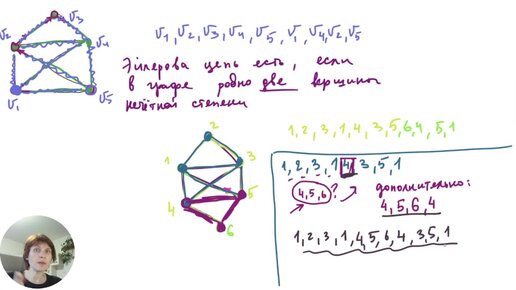 v₃
v₂
v₄
v₁
v₅
v₁, v₂, v₃, v₄, v₅, v₁, v₄, v₂, v₅
Эйлерова цепь есть, если
в графе ровно две вершины
нечётной степени
2
1
3
4
5
6
1, 2, 3, 1, 4, 3, 5, 6, 4, 5, 1
1, 2, 3, 1, 4, 3, 5, 1
4, 5, 6 ?
дополнительно:
4, 5, 6, 4
1, 2, 3, 1, 4, 5, 6, 4, 3, 5, 1